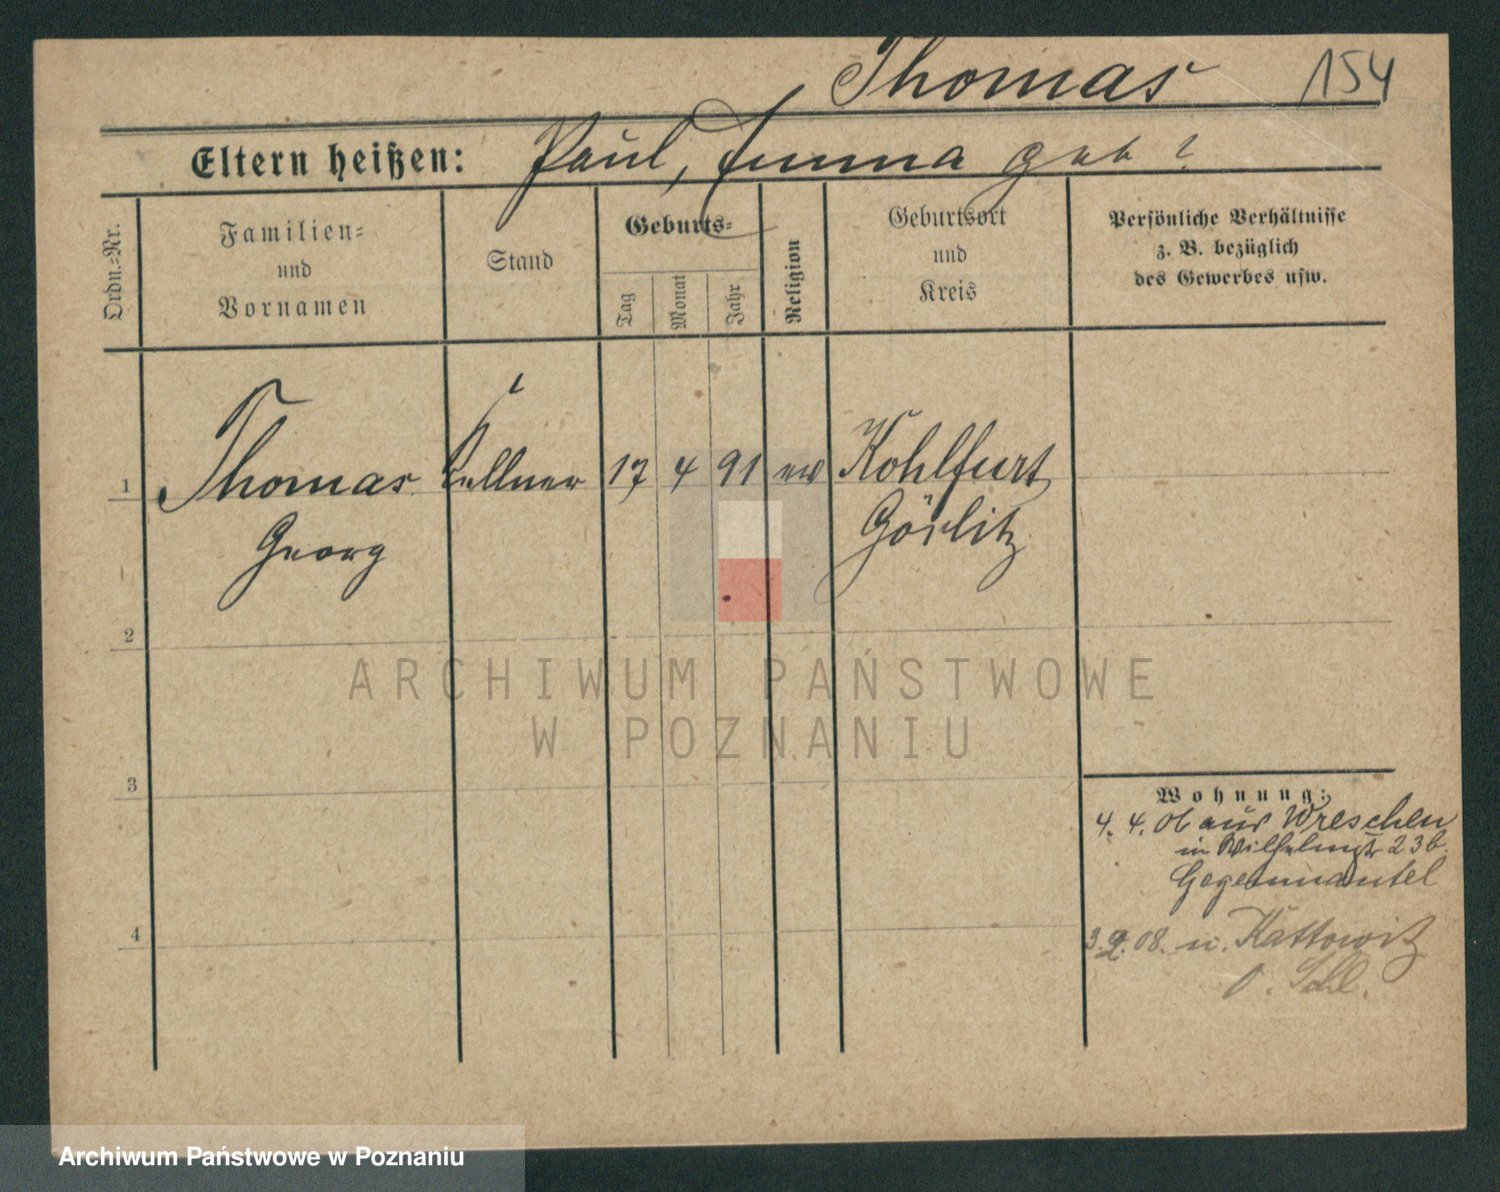 Thomas 154
Eltern heißen: Paul, Emma geb ?
Ordn.-Nr.
Familien-
und
Vornamen
Stand
Geburts-
Tag
Monat
Jahr
Religion
Geburtsort
und
Kreis
Persönliche Verhältnisse
z. B. bezüglich
des Gewerbes usw.
1 Thomas Kellner 17 4 91 ev Kohlfurt
Georg Görlitz
2
3
4
Wohnung:
4. 4. 06 aus Wreschen
in Wilhelmstr 23b.
3.2.08. n. Kattowitz
O. Schl.
ARCHIWUM PAŃSTWOWE
W POZNANIU
Archiwum Państwowe w Poznaniu